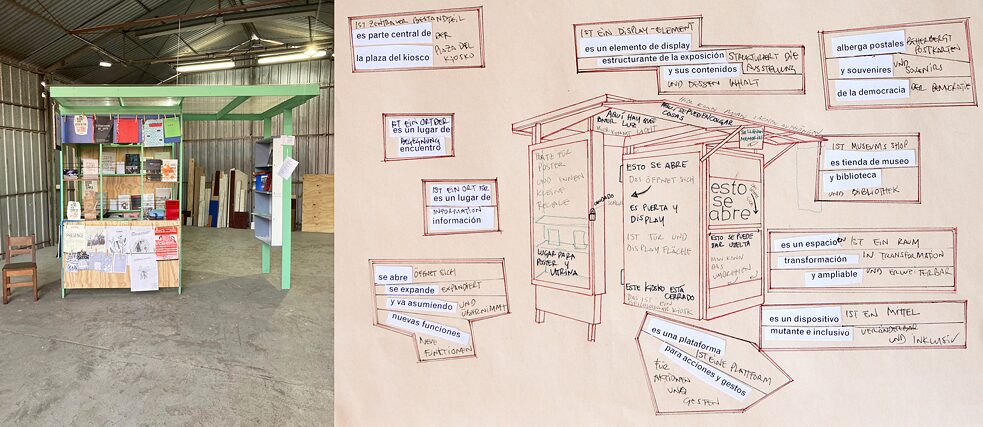 IST ZENTRALER BESTANDTEIL
es parte central de DER
la plaza del kiosco PLAZA DEL
KIOSKO
IST EIN DISPLAY-ELEMENT
es un elemento de display
estructurante de la exposición STRUKTURIERT DIE
y sus contenidos AUSSTELLUNG
UND DESSEN INHALT
alberga postales BEHERBERGT
POSTKARTEN
y souvenires UND
SOUVENIRS
de la democracia DER DEMOCRATIE
IST EIN ORT DER
es un lugar de
BEGEGNUNG
encuentro
IST EIN ORT FÜR
es un lugar de
INFORMATION
información
se abre ÖFFNET SICH
se expande EXPANDIERT
y va asumiendo UND
ÜBERNIMMT
nuevas funciones
NEUE
FUNKTIONEN
AQUÍ HAY QUE
PONER LUZ
AQUÍ SE PUEDEN COLGAR
COSAS
POSTER
UND
KLEINE
REGALE
LUGAR PARA
POSTER Y
VITRINA
CANDADO
ESTO SE ABRE
DAS ÖFFNET SICH
ES PUERTA Y
DISPLAY
IST TÜR UND
DISPLAY FLÄCHE
ESTE KIOSKO ESTÁ
CERRADO
DAS IST EIN
KIOSK
esto
se
abre
ESTO SE PUEDE
DAR VUELTA
MAN KANN
DAS
UMDREHEN
IST MUSEUMS SHOP
es tienda de museo
y biblioteca
UND
BIBLIOTHEK
es un espacio en IST EIN RAUM
transformación IN TRANSFORMATION
y ampliable UND ERWEITERBAR
es un dispositivo IST EIN MITTEL
mutante e inclusivo VERÄNDERBAR
UND INKLUSIV
es una plataforma
IST EINE PLATTFORM
para acciones y gestos
FÜR
AKTIONEN
UND
GESTEN